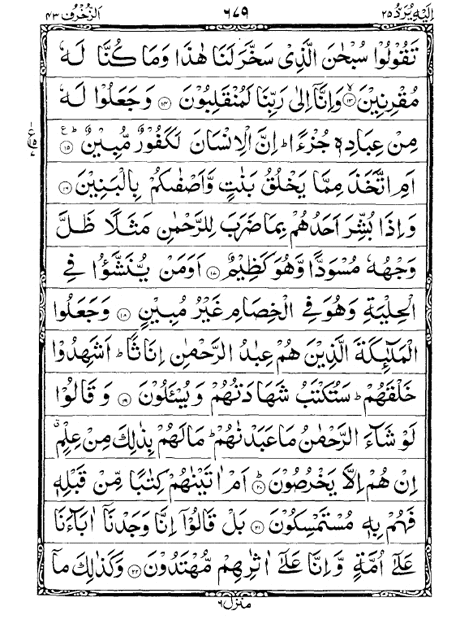 اِلَيْهِ يُرَدُّ ٢٥ ٦٧٩ اَلزُّخْرُف ٤٣
تَقُوْلُوْا سُبْحٰنَ الَّذِيْ سَخَّرَ لَنَا هٰذَا وَمَا كُنَّا لَهٗ
مُقْرِنِيْنَ ١٣ وَاِنَّاۤ اِلٰى رَبِّنَا لَمُنْقَلِبُوْنَ ١٤ وَجَعَلُوْا لَهٗ
مِنْ عِبَادِهٖ جُزْءًا ؕ اِنَّ الْاِنْسَانَ لَكَفُوْرٌ مُّبِيْنٌ ١٥
اَمِ اتَّخَذَ مِمَّا يَخْلُقُ بَنٰتٍ وَّاَصْفٰىكُمْ بِالْبَنِيْنَ ١٦
وَاِذَا بُشِّرَ اَحَدُهُمْ بِمَا ضَرَبَ لِلرَّحْمٰنِ مَثَلًا ظَلَّ
وَجْهُهٗ مُسْوَدًّا وَّهُوَ كَظِيْمٌ ١٧ اَوَمَنْ يُّنَشَّؤُا فِي
الْحِلْيَةِ وَهُوَ فِي الْخِصَامِ غَيْرُ مُبِيْنٍ ١٨ وَجَعَلُوا
الْمَلٰٓئِكَةَ الَّذِيْنَ هُمْ عِبٰدُ الرَّحْمٰنِ اِنَاثًا ؕ اَشَهِدُوْا
خَلْقَهُمْ ؕ سَتُكْتَبُ شَهَادَتُهُمْ وَيُسْـَٔلُوْنَ ١٩ وَقَالُوْا
لَوْ شَآءَ الرَّحْمٰنُ مَا عَبَدْنٰهُمْ ؕ مَا لَهُمْ بِذٰلِكَ مِنْ عِلْمٍ ۗ
اِنْ هُمْ اِلَّا يَخْرُصُوْنَ ؕ ٢٠ اَمْ اٰتَيْنٰهُمْ كِتٰبًا مِّنْ قَبْلِهٖ
فَهُمْ بِهٖ مُسْتَمْسِكُوْنَ ٢١ بَلْ قَالُوْۤا اِنَّا وَجَدْنَاۤ اٰبَآءَنَا
عَلٰٓى اُمَّةٍ وَّاِنَّا عَلٰٓى اٰثٰرِهِمْ مُّهْتَدُوْنَ ٢٢ وَكَذٰلِكَ مَاۤ
منزل ٦